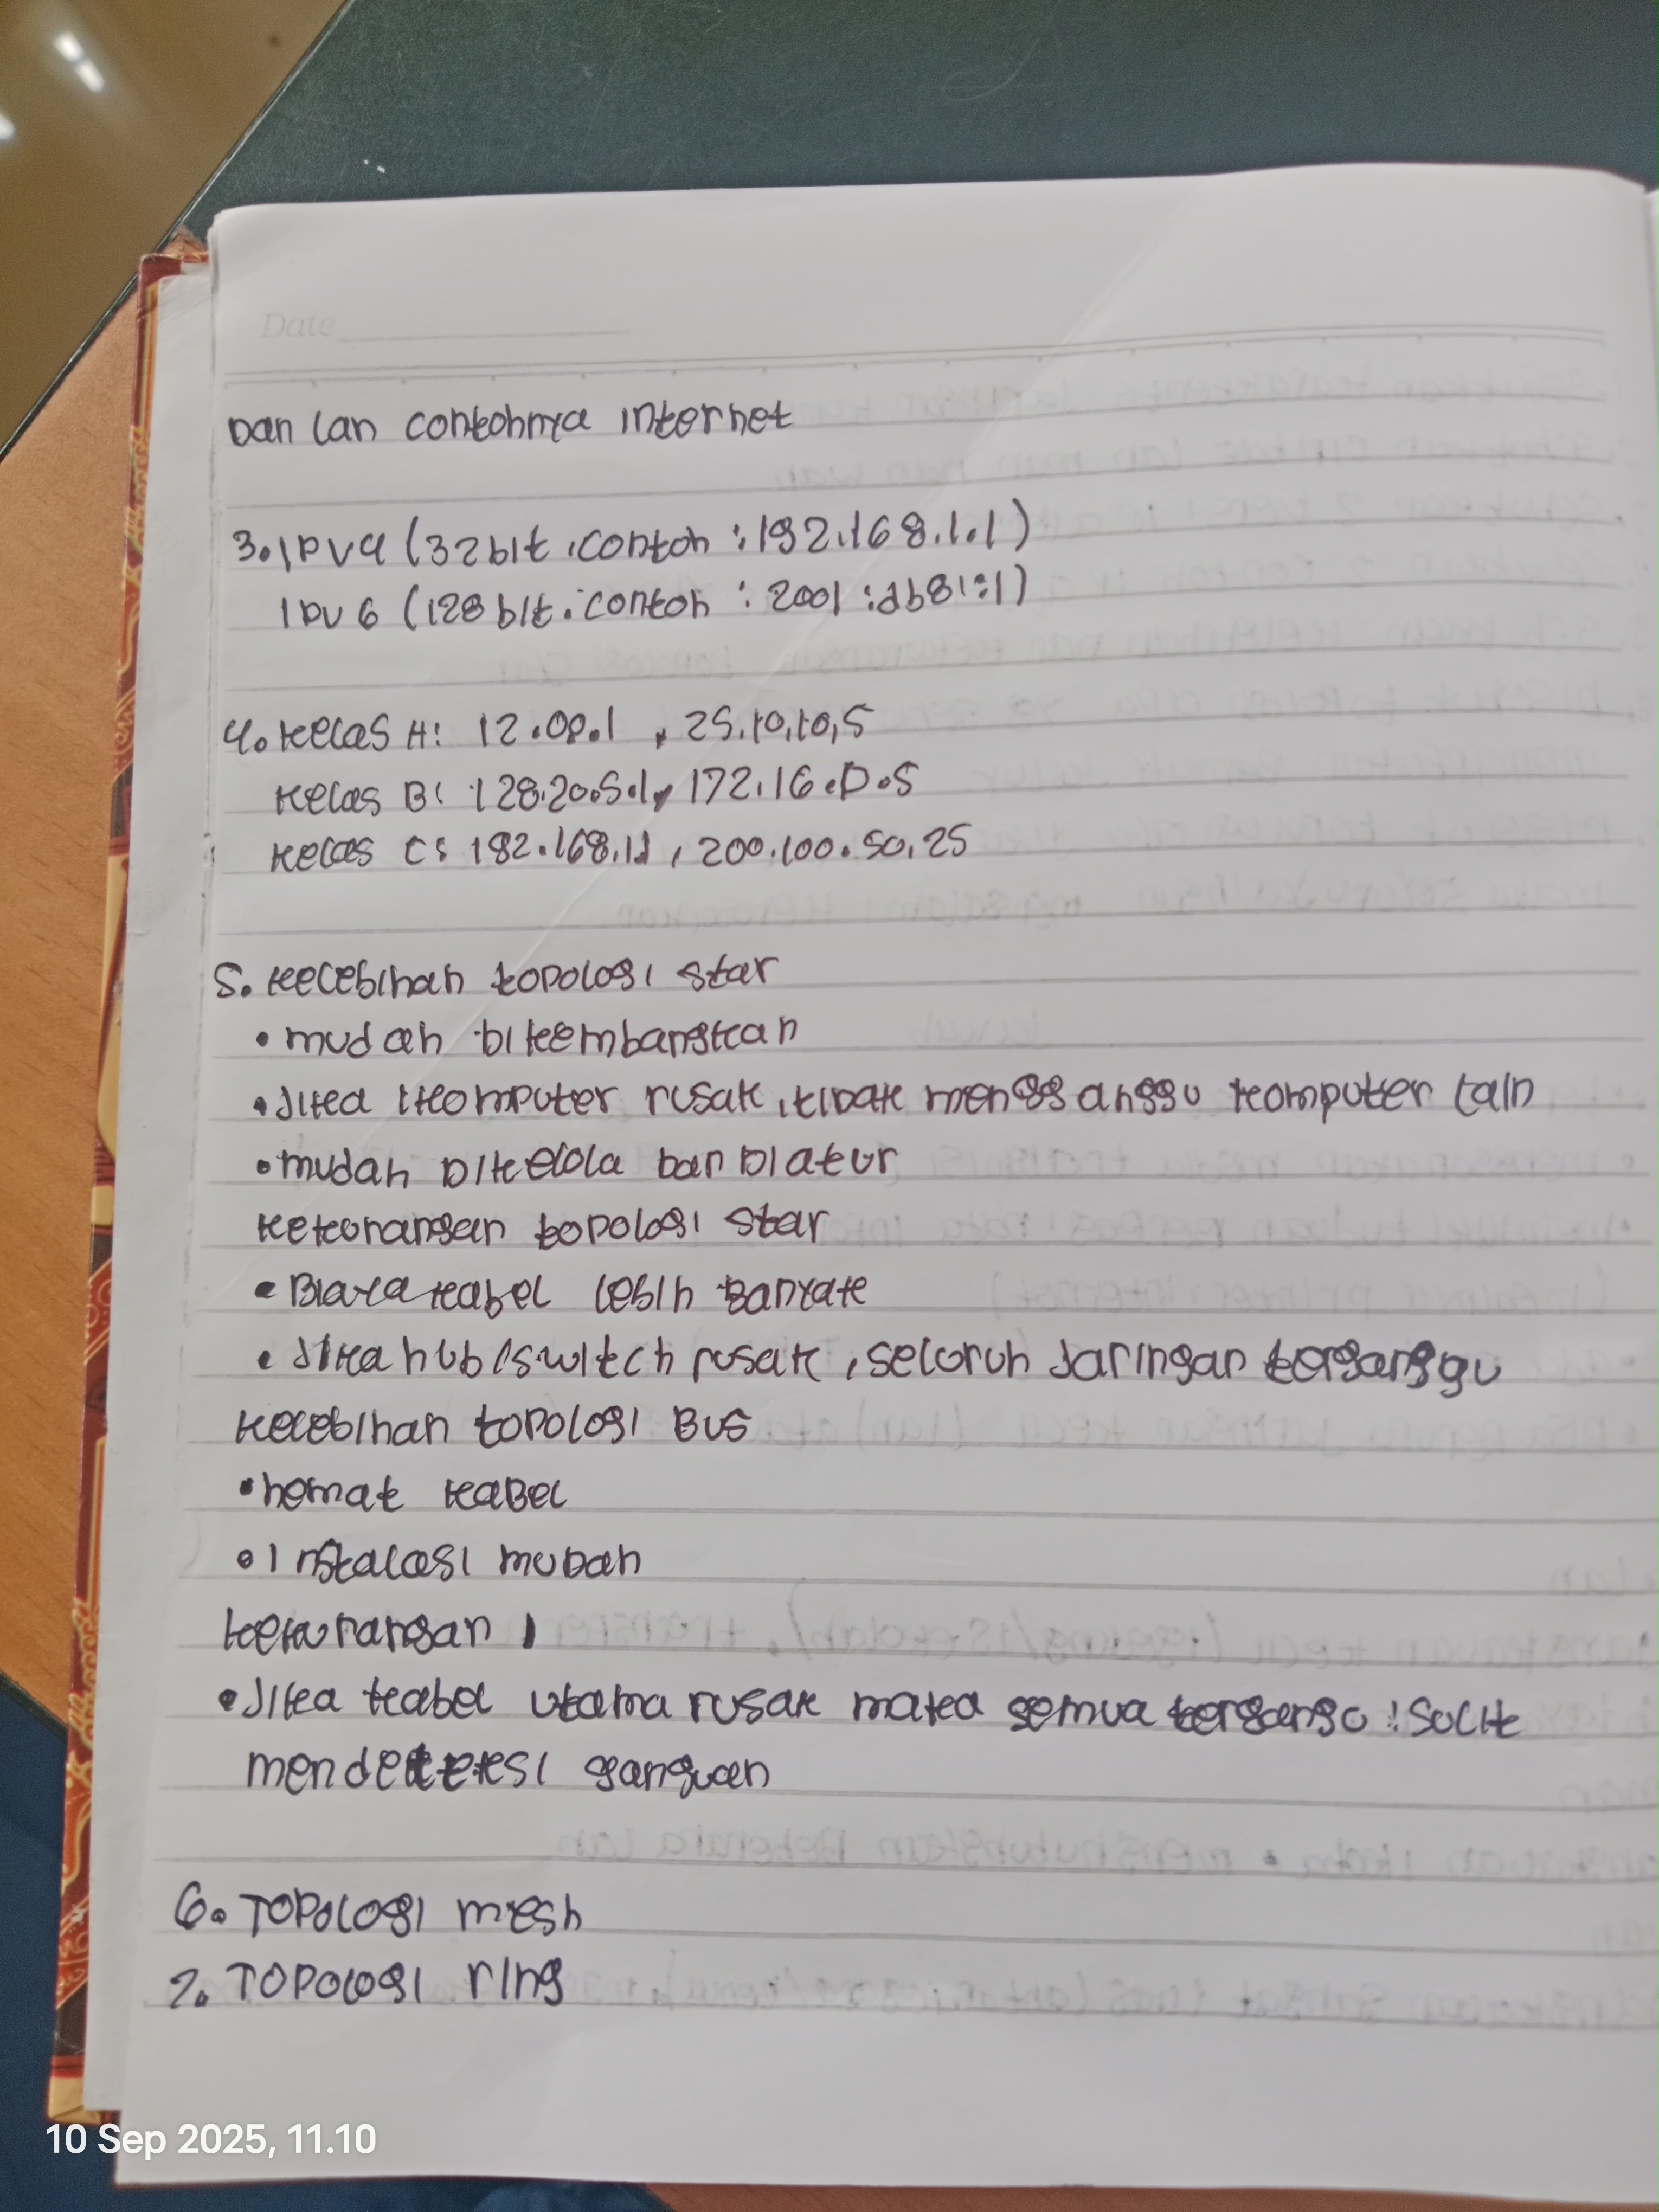 Date
Dan lan contohnya internet
3. IPV4 (32 bit, contoh : 192.168.1.1)
IPV6 (128 bit. contoh : 2001 :db8::1)
4. kelas A: 12.00.1 , 25.10.10,5
kelas B: 128.20.5.1, 172.16.0.5
kelas C: 192.168.1.1 , 200.100.50.25
5. kelebihan topologi star
• mudah dikembangkan
• Jika 1 komputer rusak, tidak mengganggu komputer lain
• mudah Dikelola dan Diatur
kekurangan topologi star
• Biaya kabel lebih Banyak
• Jika hub/switch rusak, seluruh Jaringan terganggu
kelebihan topologi Bus
• hemat kabel
• Instalasi mudah
kekurangan
• Jika kabel utama rusak maka semua tergango : sulit
mendeteksi ganguan
6. Topologi mesh
7. Topologi ring
10 Sep 2025, 11.10